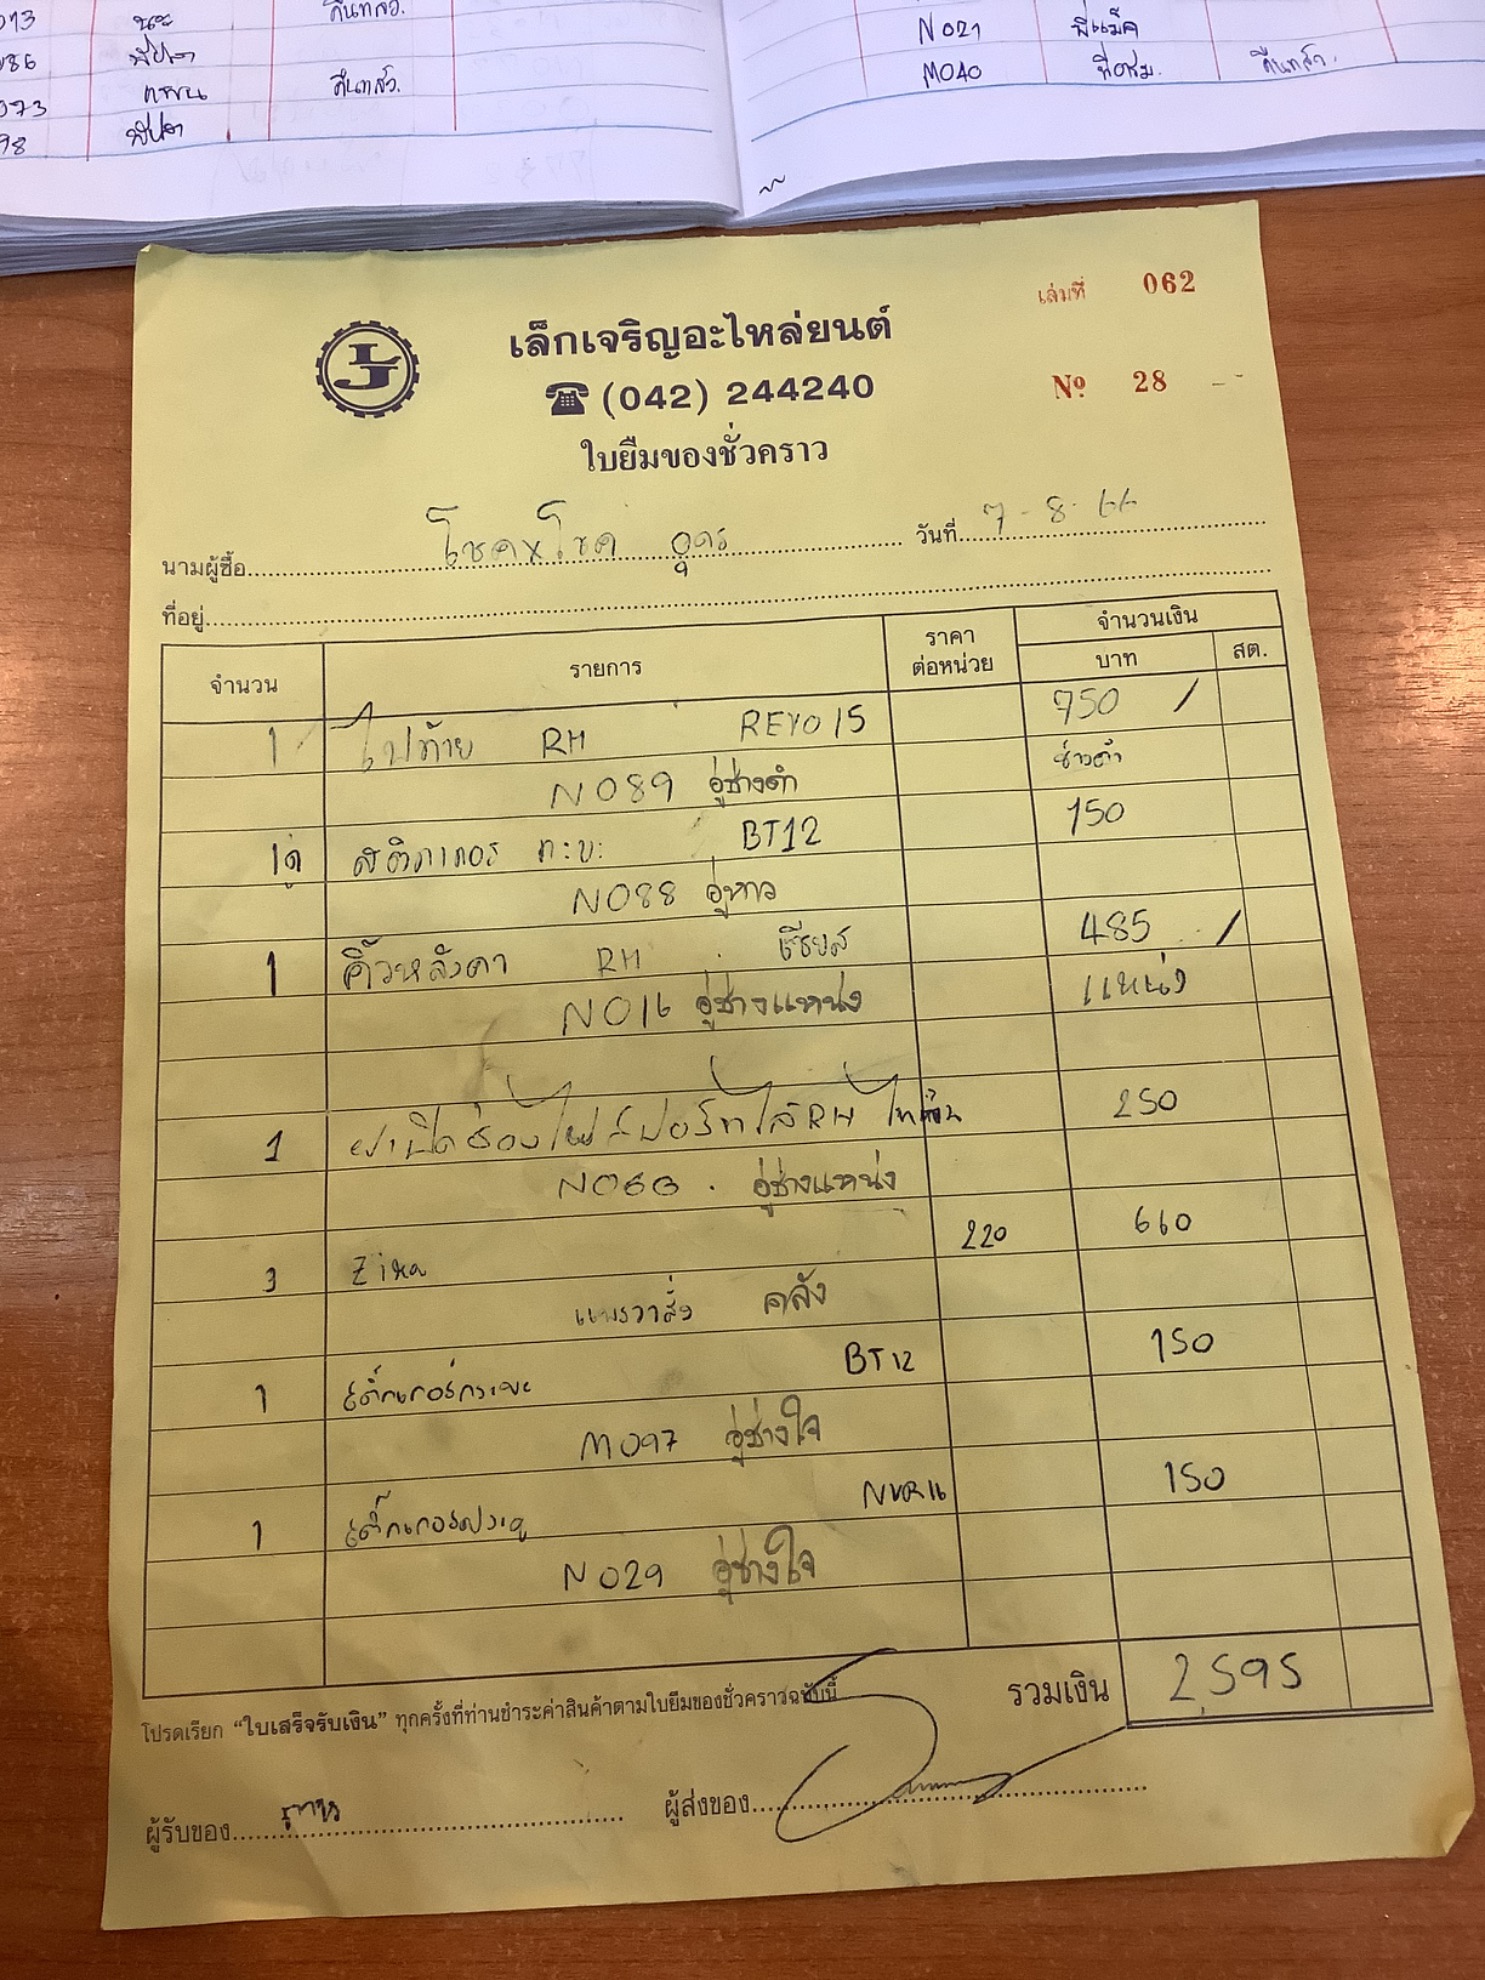 013 นะ คืนทสว.
086 พี่ปลา
073 แขน คืนทสว.
98 พี่ปลา
N021 พี่แม็ค
M040 คืนทสว.
เล่มที่ 062
เล็กเจริญอะไหล่ยนต์
(042) 244240
Nº 28
ใบยืมของชั่วคราว
นามผู้ซื้อ โชคxโชค อุดร วันที่ 7-8-66
ที่อยู่
จำนวน รายการ ราคาต่อหน่วย จำนวนเงิน
บาท สต.
1 ไฟท้าย RH REVO 15 750 /
N089 อู่ช่างดำ ช่างดำ
1คู่ สติกเกอร์ ก:บ: BT12 150
N088 อู่หาว
1 คิ้วหลังคา RH วีออส 485 /
N016 อู่ช่างแหน่ง แหน่ง
1 RH 250
อู่ช่างแหน่ง
3 220 660
แพรวาสั่ง คลัง
1 สติ๊กเกอร์กระบะ BT12 150
M097 อู่ช่างใจ
1 สติ๊กเกอร์ประตู NVR16 150
N029 อู่ช่างใจ
รวมเงิน 2595
โปรดเรียก "ใบเสร็จรับเงิน" ทุกครั้งที่ท่านชำระค่าสินค้าตามใบยืมของชั่วคราวฉบับนี้
ผู้รับของ ผู้ส่งของ